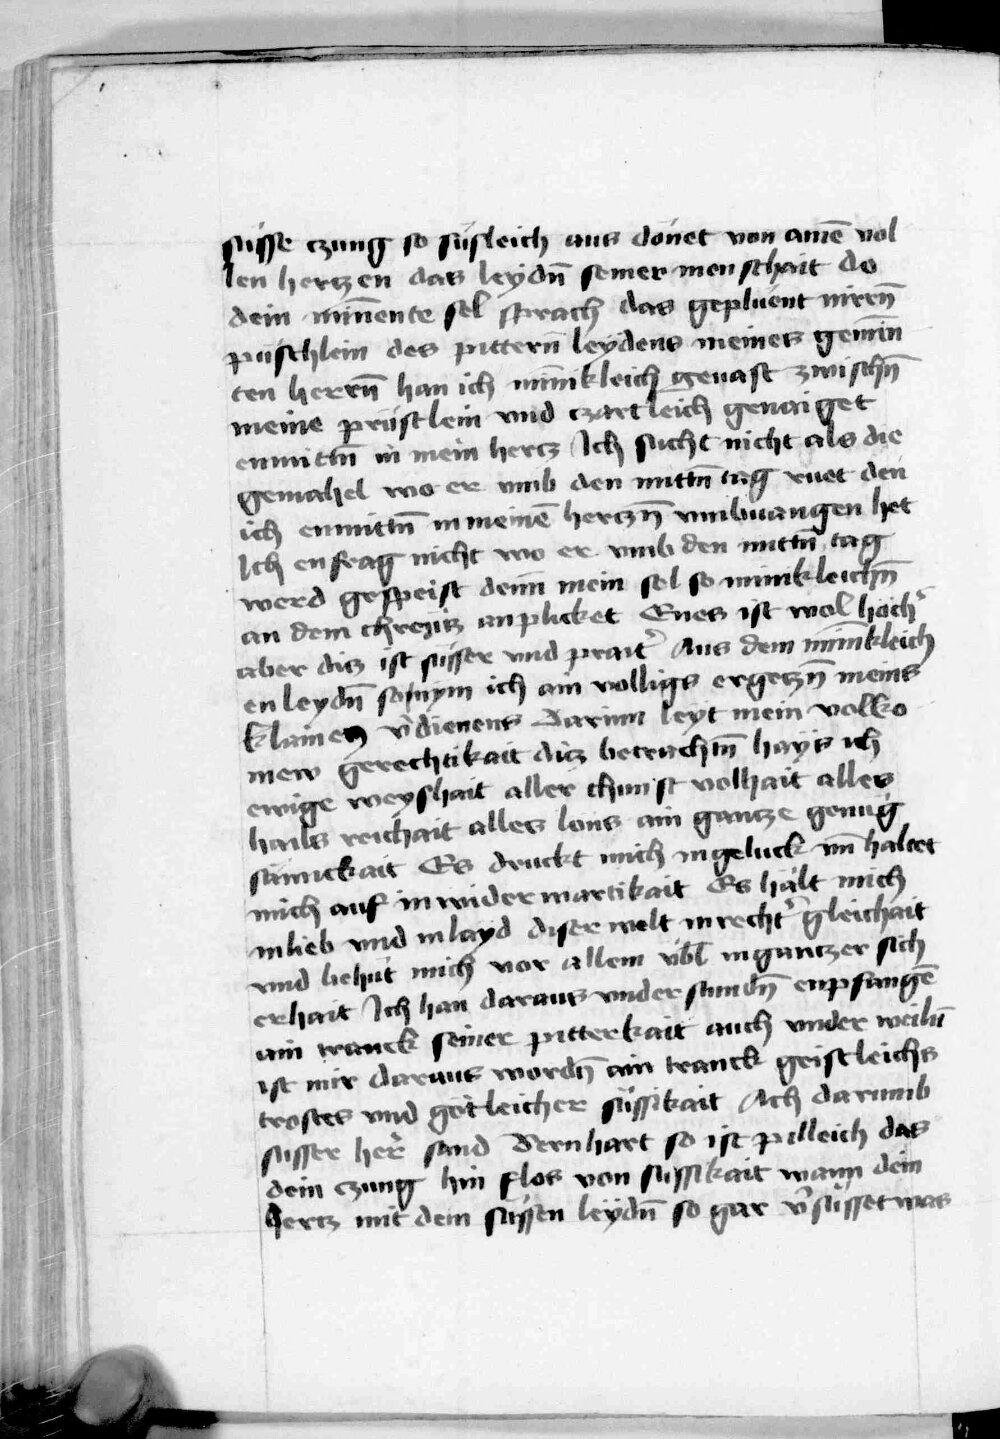 süsse czung so süsleich aus dönet von ainē vol
len hertzen das leydn̄ seiner menschait do
dein mīnente sel sprach das geplüent mirrn̄
püschlein des pittern̄ leydens meines gemīn
ten herrn̄ han ich mīnikleich geuast zwischn̄
meine prüstlein vnd czartleich genaiget
enmittn̄ in mein hertz Ich sucht nicht als die
gemahel wo er vmb den mittn̄ tag ruet den
ich enmittn̄ in meinē hertzn̄ vmbuangen het
Ich enfrag nicht wo er vmb den mittn̄ tag
werd gespeist denn mein sel so mīnikleichn̄
an dem chrewtz anplicket Enes ist wol höch᾽
aber ditz ist süsser vnd prait᾽ Aus dem mīnikleich
en leydn̄ so nym ich ain volligs ergetzn̄ meins
klainen v᾽dienens Darinn leyt mein volko
men gerechtikait ditz betrachtn̄ hayss ich
ewige weyshait aller chunst volhait alles
hails reichait alles lons ain gantze genug
samckait Es druckt mich in geluck vn̄ haltet
mich auf in widerwartikait Es hält mich
in lieb vnd in layd diser welt in recht᾽ gleichait
vnd behüt mich vor allem vbl̄ in gantzer sich
erhait Ich han daraus vnderstundn̄ enpfangē
ain tranck seiner pitterkait auch vnder weiln̄
ist mir daraus wordn̄ ain tranck geistleichs
trostes vnd götleicher süssikait Ach darumb
süsser her᾽ sand Bernhart so ist pilleich das
dein czung hin flos von süssikait wann dein
hertz mit dem süssen leydn̄ so gar v᾽süsset was